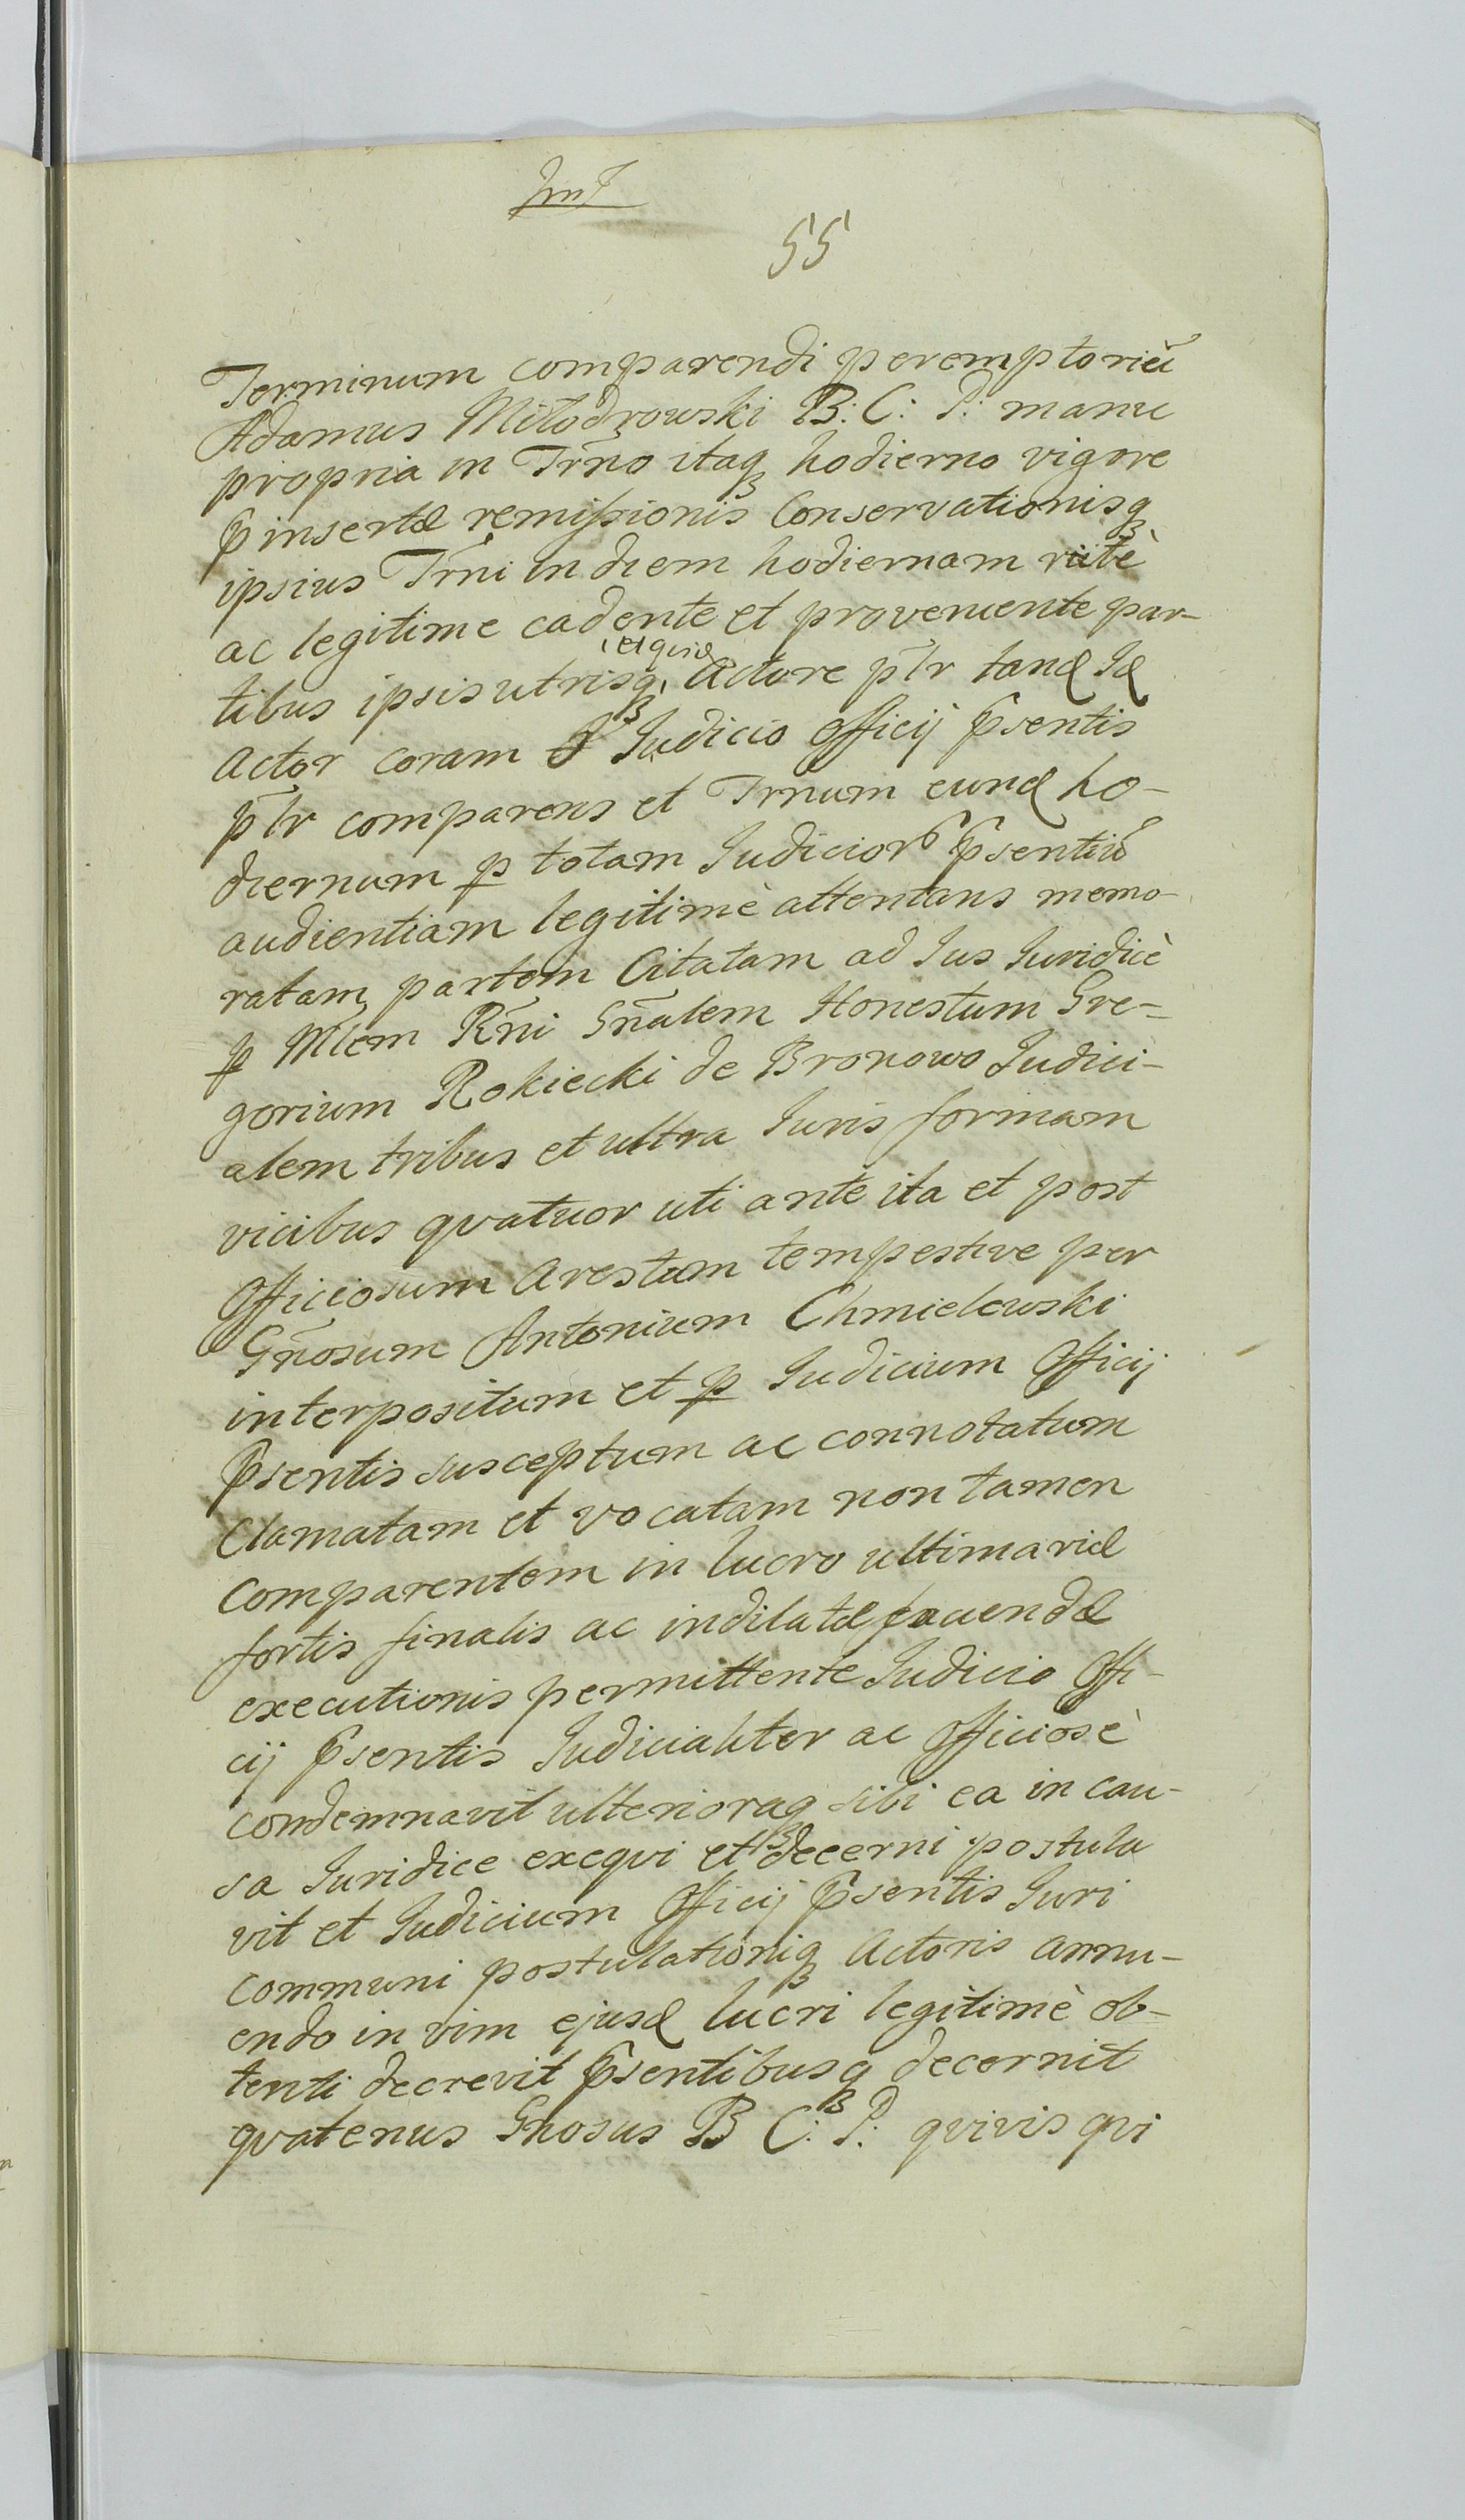 55
Terminum comparendi peremptoriū
Adamus Miłodrowski B: C: P: manu
propria in Trno itaqꝫ hodierno vigore
p̄insertæ remissionis Conservationisqꝫ
ipsius Trni in diem hodiernam ritè
ac legitime cadente et proveniente par-
tibus ipsis utrisqꝫ Actore pltr tanq Iq
Actor coram Judicio Officij p̄sentis
pltr comparens et Trnum eunq ho-
diernum ꝑ totam Judicior p̄sentiū
audientiam legitimè attentans memo-
ratam partem Citatam ad Jus Juridicè
ꝑ Mlem Rni Gnalem Honestum Gre-
gorium Rokiecki de Bronowo Judici-
alem tribus et ultra Juris formam
vicibus qvatuor uti ante ita et post
Officiosum Arestum tempestive per
Gnosum Antonium Chmielewski
interpositum et ꝑ Judicium Officij
p̄sentis susceptum ac connotatum
Clamatam et vocatam non tamen
Comparentem in lucro ultimariæ
sortis finalis ac indilatæ faciendæ
executionis permittente Judicio Offi-
cij p̄sentis Judicialiter ac Officiosè
condemnavit ulterioraqꝫ sibi ea in cau-
sa Juridice exeqvi et decerni postula
vit et Judicium Officij p̄sentis Juri
Communi postulationiqꝫ Actoris annu-
endo in vim ejusq lucri legitimè ob-
tenti decrevit p̄sentibusqꝫ decernit
qvatenus Gnosus B C: P: qvivis qvi